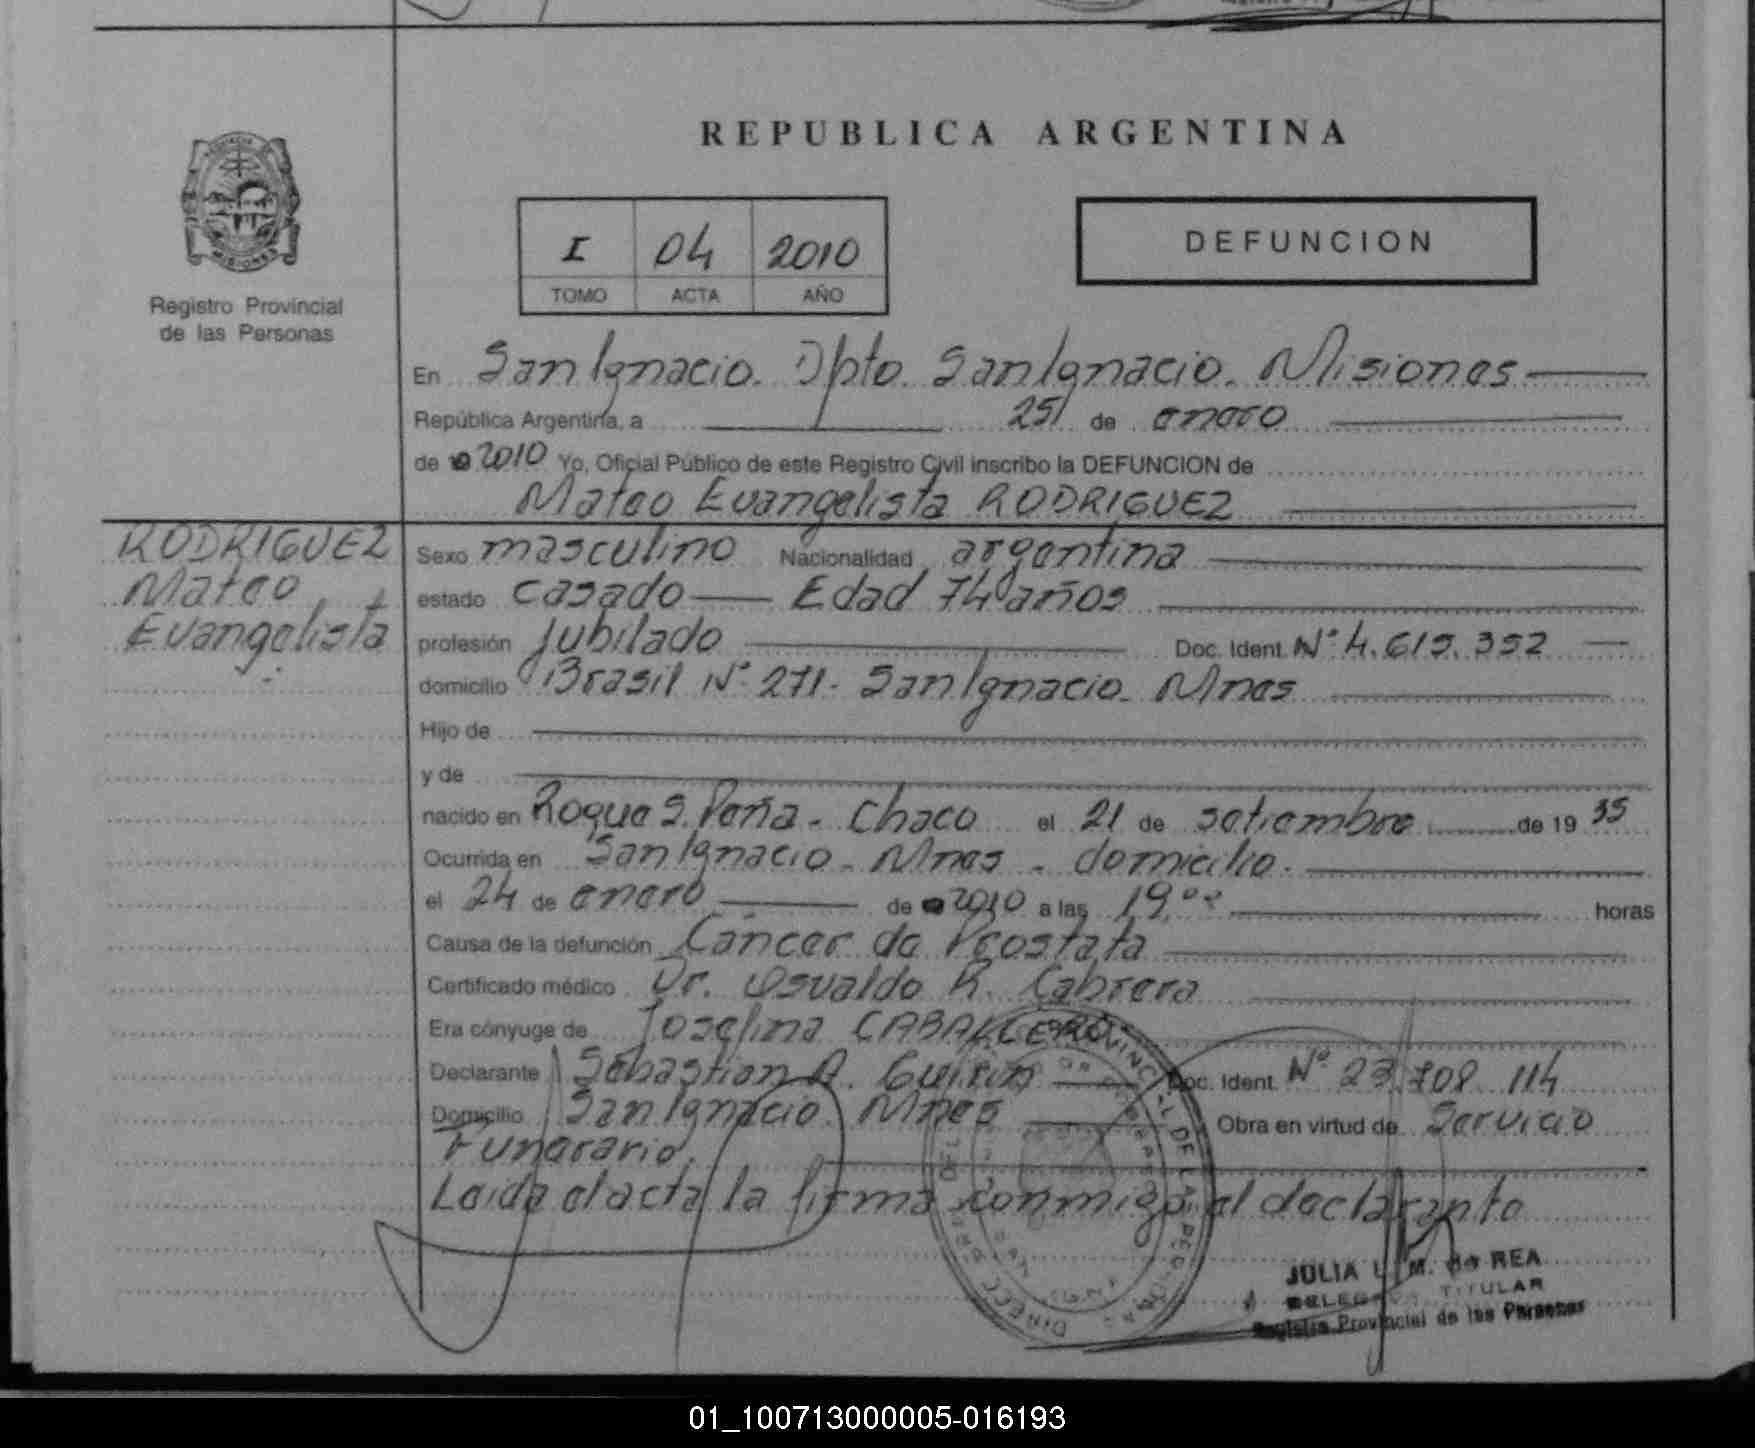 REPUBLICA ARGENTINA
I 04 2010
TOMO ACTA AÑO
DEFUNCION
MISIONES
Registro Provincial
de las Personas
En San Ignacio. Dpto. San Ignacio. Misiones
República Argentina, a 25 de enero
de 2010 Yo, Oficial Público de este Registro Civil inscribo la DEFUNCION de
Mateo Evangelista RODRIGUEZ
RODRIGUEZ
Mateo
Evangelista
Sexo masculino Nacionalidad argentina
estado casado Edad 74 años
profesión jubilado Doc. Ident. Nº 4.615.352
domicilio Brasil Nº 271. San Ignacio. Mnes
Hijo de
y de
nacido en Roque S. Peña. Chaco el 21 de setiembre de 19 35
Ocurrida en San Ignacio. Mnes. domicilio.
el 24 de enero de 2010 a las 19.⁰⁰ horas
Causa de la defunción Cáncer de Prostata
Certificado médico Dr. Osvaldo R. Cabrera
Era cónyuge de Josefina CABALLERO
Declarante Sebastian A. Doc. Ident. Nº 23.708.114
Domicilio San Ignacio. Mnes Obra en virtud de Servicio
Funerario.
Leida el acta la firma conmigo el declarante
JULIA L. M. de REA
DELEGADA TITULAR
Registro Provincial de las Personas
01_100713000005-016193